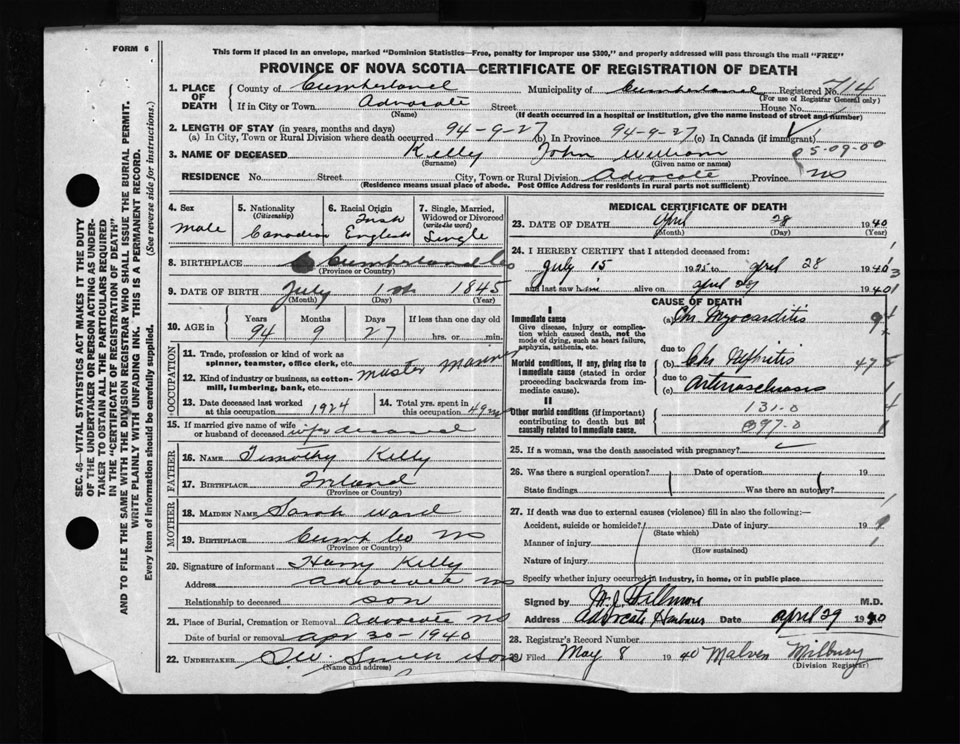 FORM 6
This form if placed in an envelope, marked "Dominion Statistics—Free, penalty for improper use $300," and properly addressed will pass through the mail "FREE"
PROVINCE OF NOVA SCOTIA—CERTIFICATE OF REGISTRATION OF DEATH
SEC. 46—VITAL STATISTICS ACT MAKES IT THE DUTY
OF THE UNDERTAKER OR PERSON ACTING AS UNDER-
TAKER TO OBTAIN ALL THE PARTICULARS REQUIRED
IN THE "CERTIFICATE OF REGISTRATION OF DEATH"
AND TO FILE THE SAME WITH THE DIVISION REGISTRAR WHO SHALL ISSUE THE BURIAL PERMIT.
WRITE PLAINLY WITH UNFADING INK. THIS IS A PERMANENT RECORD.
Every item of information should be carefully supplied. (See reverse side for instructions.)
1. PLACE OF DEATH County of Cumberland Municipality of Cumberland Registered No. 714
(For use of Registrar General only)
If in City or Town Advocate Street House No.
(Name) (If death occurred in a hospital or institution, give the name instead of street and number)
2. LENGTH OF STAY (in years, months and days)
(a) In City, Town or Rural Division where death occurred 94-9-27 (b) In Province 94-9-27 (c) In Canada (if immigrant)
3. NAME OF DECEASED Kelly John William
(Surname) (Given name or names)
05-09-00
RESIDENCE No. Street City, Town or Rural Division Advocate Province NS
(Residence means usual place of abode. Post Office Address for residents in rural parts not sufficient)
4. Sex Male
5. Nationality (Citizenship) Canadian
6. Racial Origin Irish English
7. Single, Married, Widowed or Divorced (write the word) Single
8. BIRTHPLACE Cumberland Co
(Province or Country)
9. DATE OF BIRTH July 1st 1845
(Month) (Day) (Year)
10. AGE in Years 94 Months 9 Days 27 If less than one day old
hrs. or min.
OCCUPATION
11. Trade, profession or kind of work as
spinner, teamster, office clerk, etc. Master Mariner
12. Kind of industry or business, as cotton-
mill, lumbering, bank, etc.
13. Date deceased last worked
at this occupation 1924
14. Total yrs. spent in
this occupation 49
15. If married give name of wife
or husband of deceased wife deceased
FATHER
16. NAME Timothy Kelly
17. BIRTHPLACE Ireland
(Province or Country)
MOTHER
18. MAIDEN NAME Sarah Ward
19. BIRTHPLACE Cumb Co NS
(Province or Country)
20. Signature of informant Harry Kelly
Address Advocate NS
Relationship to deceased son
21. Place of Burial, Cremation or Removal Advocate NS
Date of burial or removal Apr 30-1940
22. UNDERTAKER S.W. Smith & Son
(Name and address)
MEDICAL CERTIFICATE OF DEATH
23. DATE OF DEATH April 28 1940
(Month) (Day) (Year)
24. I HEREBY CERTIFY that I attended deceased from:
July 15 1925 to April 28 1940
and last saw him alive on April 28 1940
CAUSE OF DEATH
I
Immediate cause (a) Chr Myocarditis
Give disease, injury or complica-
tion which caused death, not the
mode of dying, such as heart failure,
asphyxia, asthenia, etc.
Morbid conditions, if any, giving rise to
immediate cause (stated in order
proceeding backwards from im-
mediate cause).
due to
(b) Chr Nephritis
due to
(c) Arteriosclerosis
II
Other morbid conditions (if important)
contributing to death but not
causally related to immediate cause.
131-0
097-0
25. If a woman, was the death associated with pregnancy?
26. Was there a surgical operation? Date of operation 19
State findings Was there an autopsy?
27. If death was due to external causes (violence) fill in also the following:—
Accident, suicide or homicide? Date of injury 19
(State which)
Manner of injury
(How sustained)
Nature of injury
Specify whether injury occurred in industry, in home, or in public place
Signed by M.D.
Address Advocate Harbour Date April 29 1940
28. Registrar's Record Number
29. Filed May 8 1940 Milbury
(Division Registrar)